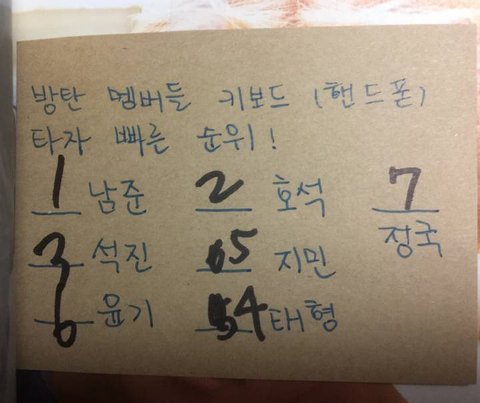 방탄 멤버들 키보드 (핸드폰)
타자 빠른 순위!
1 남준 2 호석 7
3 석진 5 지민 정국
6 윤기 4 태형